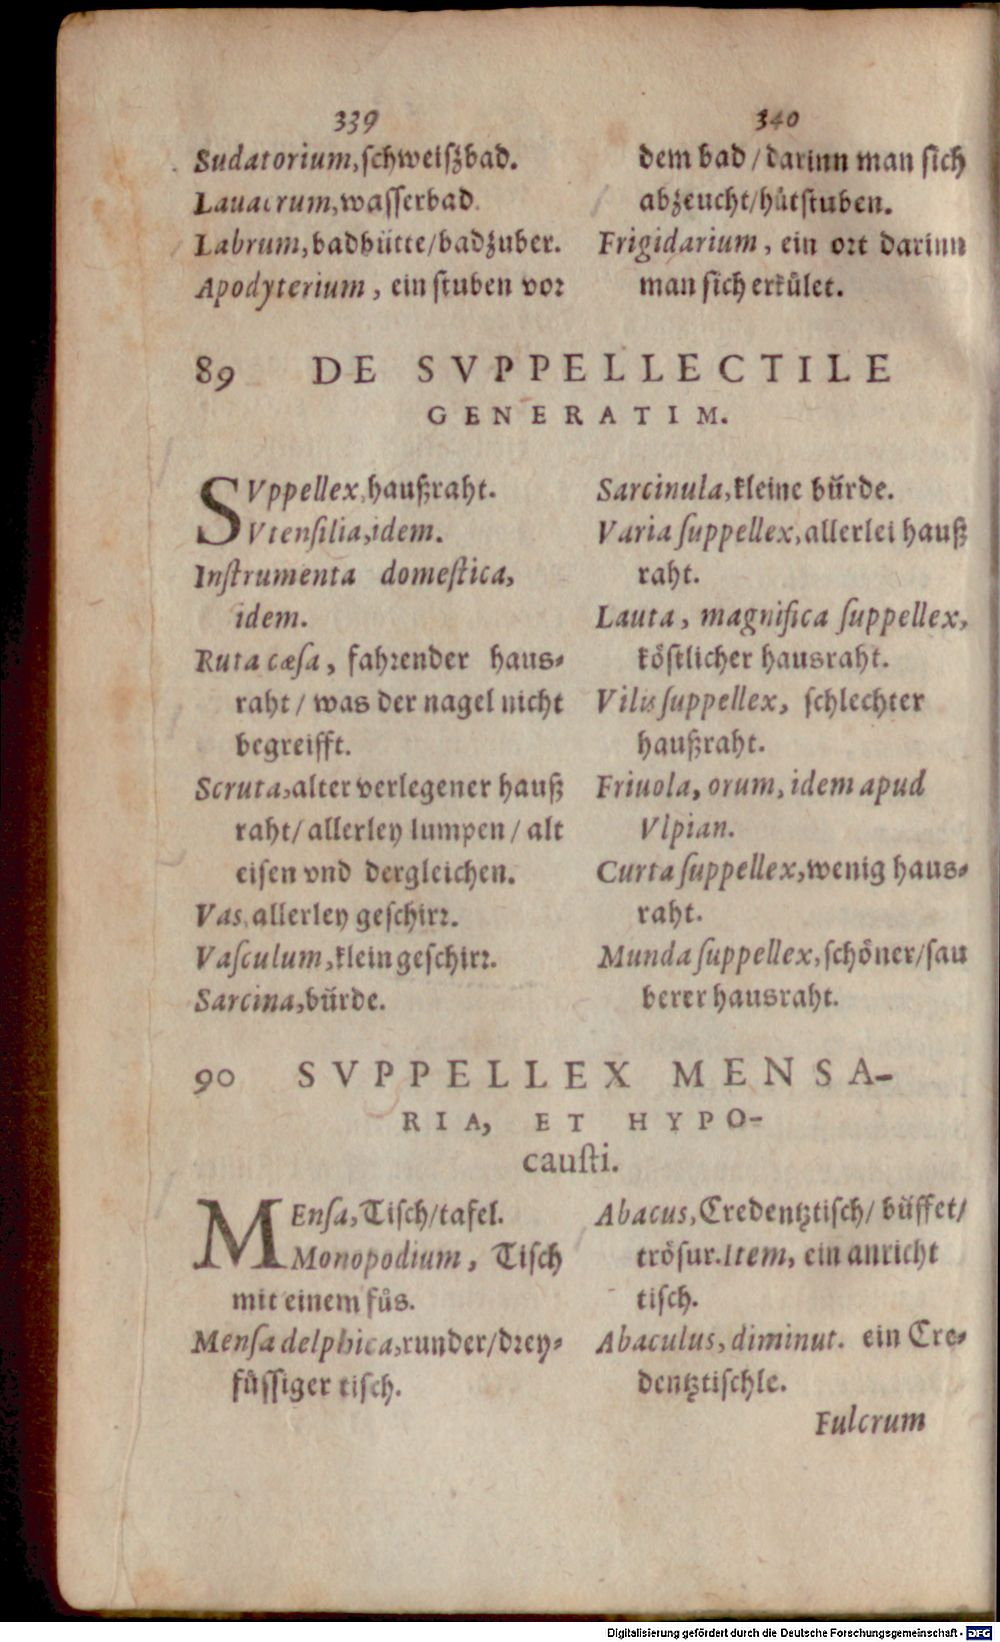 339
Sudatorium, schweiszbad.
Lauacrum, wasserbad.
Labrum, badbütte/badzuber.
Apodyterium, ein stuben vor
340
dem bad/darinn man sich
abzeucht/hütstuben.
Frigidarium, ein ort darinn
man sich erkület.
89 DE SVPPELLECTILE
GENERATIM.
SVppellex, haußraht.
Vtensilia, idem.
Instrumenta domestica,
idem.
Ruta cæsa, fahrender haus-
raht/was der nagel nicht
begreifft.
Scruta, alter verlegener hauß
raht/allerley lumpen/alt
eisen vnd dergleichen.
Vas, allerley geschirr.
Vasculum, klein geschirr.
Sarcina, bürde.
Sarcinula, kleine bürde.
Varia suppellex, allerlei hauß
raht.
Lauta, magnifica suppellex,
köstlicher hausraht.
Vilis suppellex, schlechter
haußraht.
Friuola, orum, idem apud
Vlpian.
Curta suppellex, wenig haus-
raht.
Munda suppellex, schöner/sau
berer hausraht.
90 SVPPELLEX MENSA-
RIA, ET HYPO-
causti.
MEnsa, Tisch/tafel.
Monopodium, Tisch
mit einem füs.
Mensa delphica, runder/drey-
füssiger tisch.
Abacus, Credentztisch/büffet/
trösur. Item, ein anricht
tisch.
Abaculus, diminut. ein Cre-
dentztischle.
Fulcrum
Digitalisierung gefördert durch die Deutsche Forschungsgemeinschaft - DFG